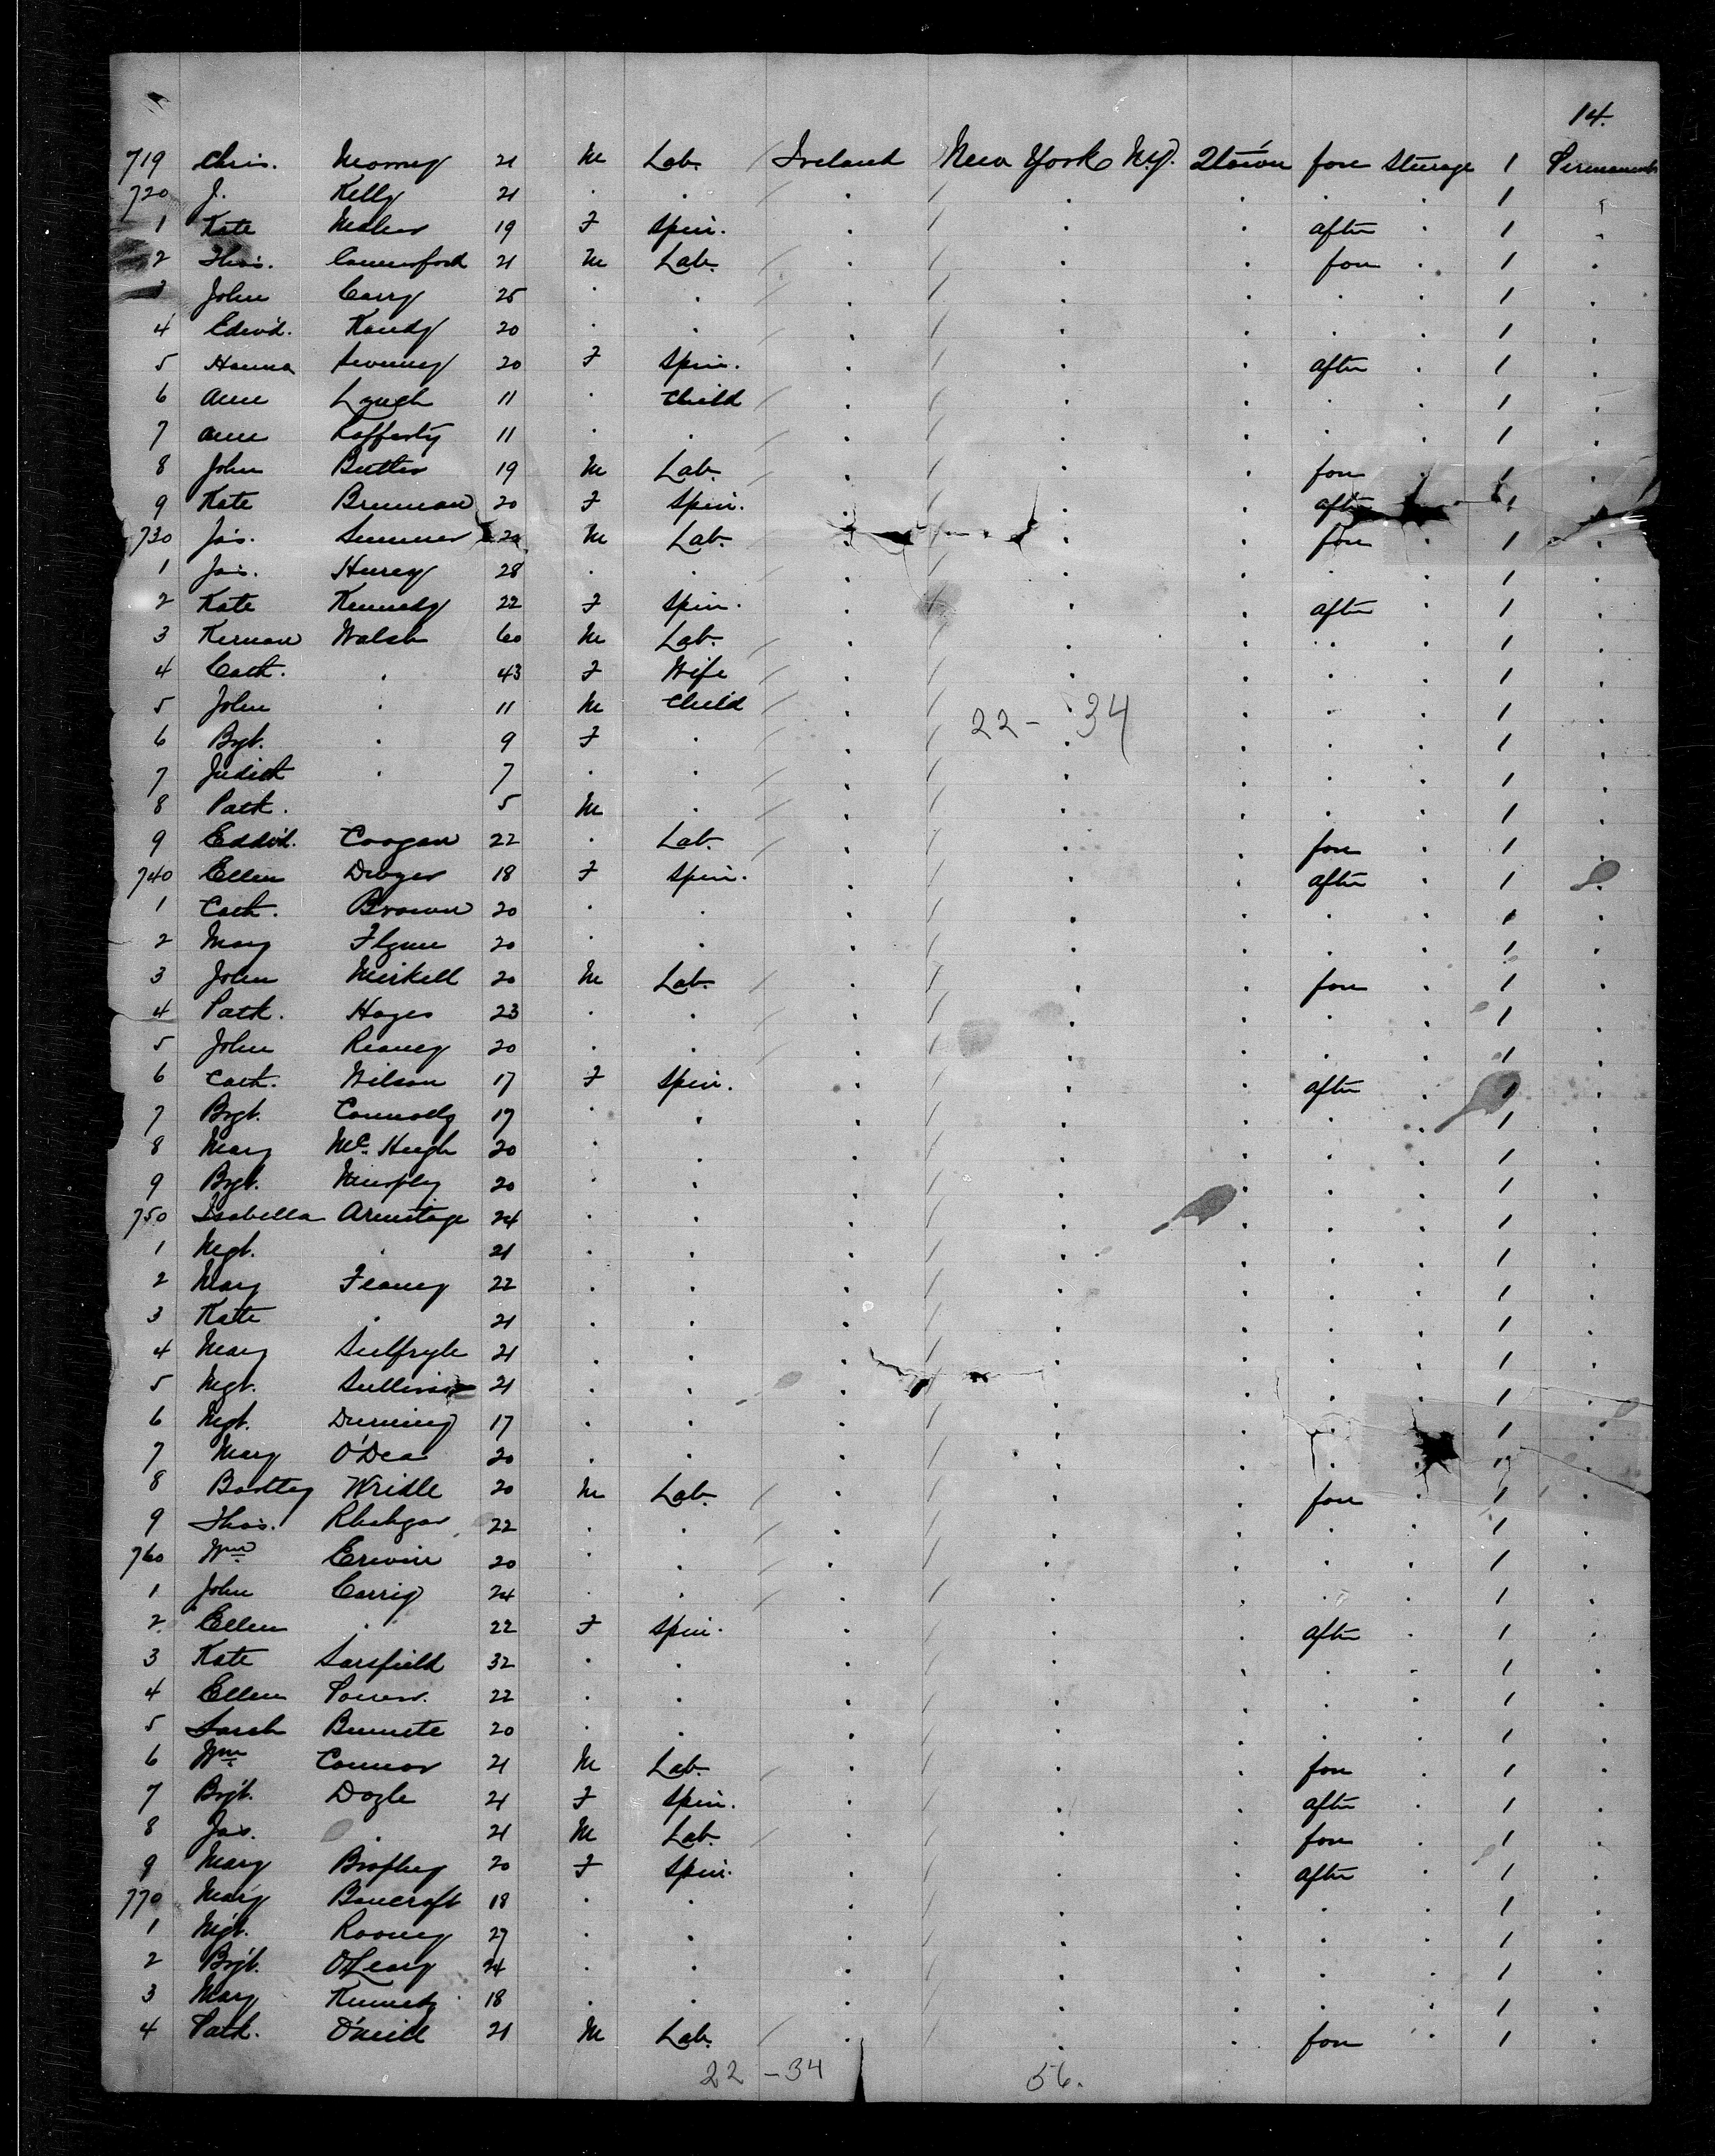 14.
719 Chris. 21 M Lab. Ireland New York N.Y. Qtown fore Steerage 1 Permanent
720 J. Kelly 21 . . . . . . . 1 "
1 Kate Maher 19 F Spin. . . . after . 1 .
2 Thos. Comerford 21 M Lab. . . . fore . 1 .
3 John Carry 25 . . . . . . . 1 .
4 Edwd. 20 . . . . . . . 1 .
5 Hanna Sweeney 20 F Spin. . . . after . 1 .
6 Ann Lynch 11 . Child . . . . . 1 .
7 Ann Rafferty 11 . . . . . . . 1 .
8 John Butler 19 M Lab. . . . fore . 1 .
9 Kate Brennan 20 F Spin. . . . after 1
730 Jas. M Lab. . . . fore . 1 .
1 Jas. 28 . . . . . . . 1 .
2 Kate Kennedy 22 F Spin. . . . after . 1 .
3 Kernan Walsh 60 M Lab. . . . . . 1 .
4 Cath. . 43 F Wife . . . . . 1 .
5 John . 11 M Child . . . . . 1 .
22 - 34
6 Bgt. . 9 F . . . . . . 1 .
7 Judith . 7 . . . . . . . 1 .
8 Patk. 5 M . . . . . . 1 .
9 Eddwd. Coogan 22 . Lab. . . . fore . 1 .
740 Ellen Dwyer 18 F Spin. . . . after . 1 .
1 Cath. Brown 20 . . . . . . . 1 .
2 Mary Flynn 20 . . . . . . . 1 .
3 John Meikell 20 M Lab. . . . fore . 1 .
4 Patk. Hayes 23 . . . . . . . 1 .
5 John Reaney 20 . . . . . . . 1 .
6 Cath. Wilson 17 F Spin. . . . after . 1 .
7 Bgt. Connolly 19 . . . . . . . 1 .
8 Mary Mc. Hugh 20 . . . . . . . 1 .
9 Bgt. Murphy 20 . . . . . . . 1 .
750 Isabella Armitage 24 . . . . . . . 1 .
1 Mgt. . 21 . . . . . . . 1 .
2 Mary Feaney 22 . . . . . . . 1 .
3 Kate . 21 . . . . . . . 1 .
4 Mary 21 . . . . . . . 1 .
5 Mgt. Sullivan 21 . . . . . . . 1 .
6 Mgt. 17 . . . . . . 1 .
7 Mary O'Dea 20 . . . . . . 1 .
8 Bartley Wridle 20 M Lab. . . . fore . 1 .
9 Thos. 22 . . . . . . . 1 .
760 Wm Erwin 20 . . . . . . . 1 .
1 John Carrig 24 . . . . . . . 1 .
2 Ellen . 22 F Spin. . . . after . 1 .
3 Kate Sarsfield 32 . . . . . . . 1 .
4 Ellen 22 . . . . . . . 1 .
5 Sarah 20 . . . . . . . 1 .
6 Wm Connor 21 M Lab. . . . fore . 1 .
7 Bgt. Doyle 21 F Spin. . . . after . 1 .
8 Jas. . 21 M Lab. . . . fore . 1 .
9 Mary Brophey 20 F Spin. . . . after . 1 .
770 Mary Bancroft 18 . . . . . . . 1 .
1 Mgt. Rooney 27 . . . . . . . 1 .
2 Bgt. O'Leary 24 . . . . . . . 1 .
3 Mary Kennedy 18 . . . . . . . 1 .
4 Patk. O'Neill 21 M Lab. . . . fore . 1 .
22 - 34 56.